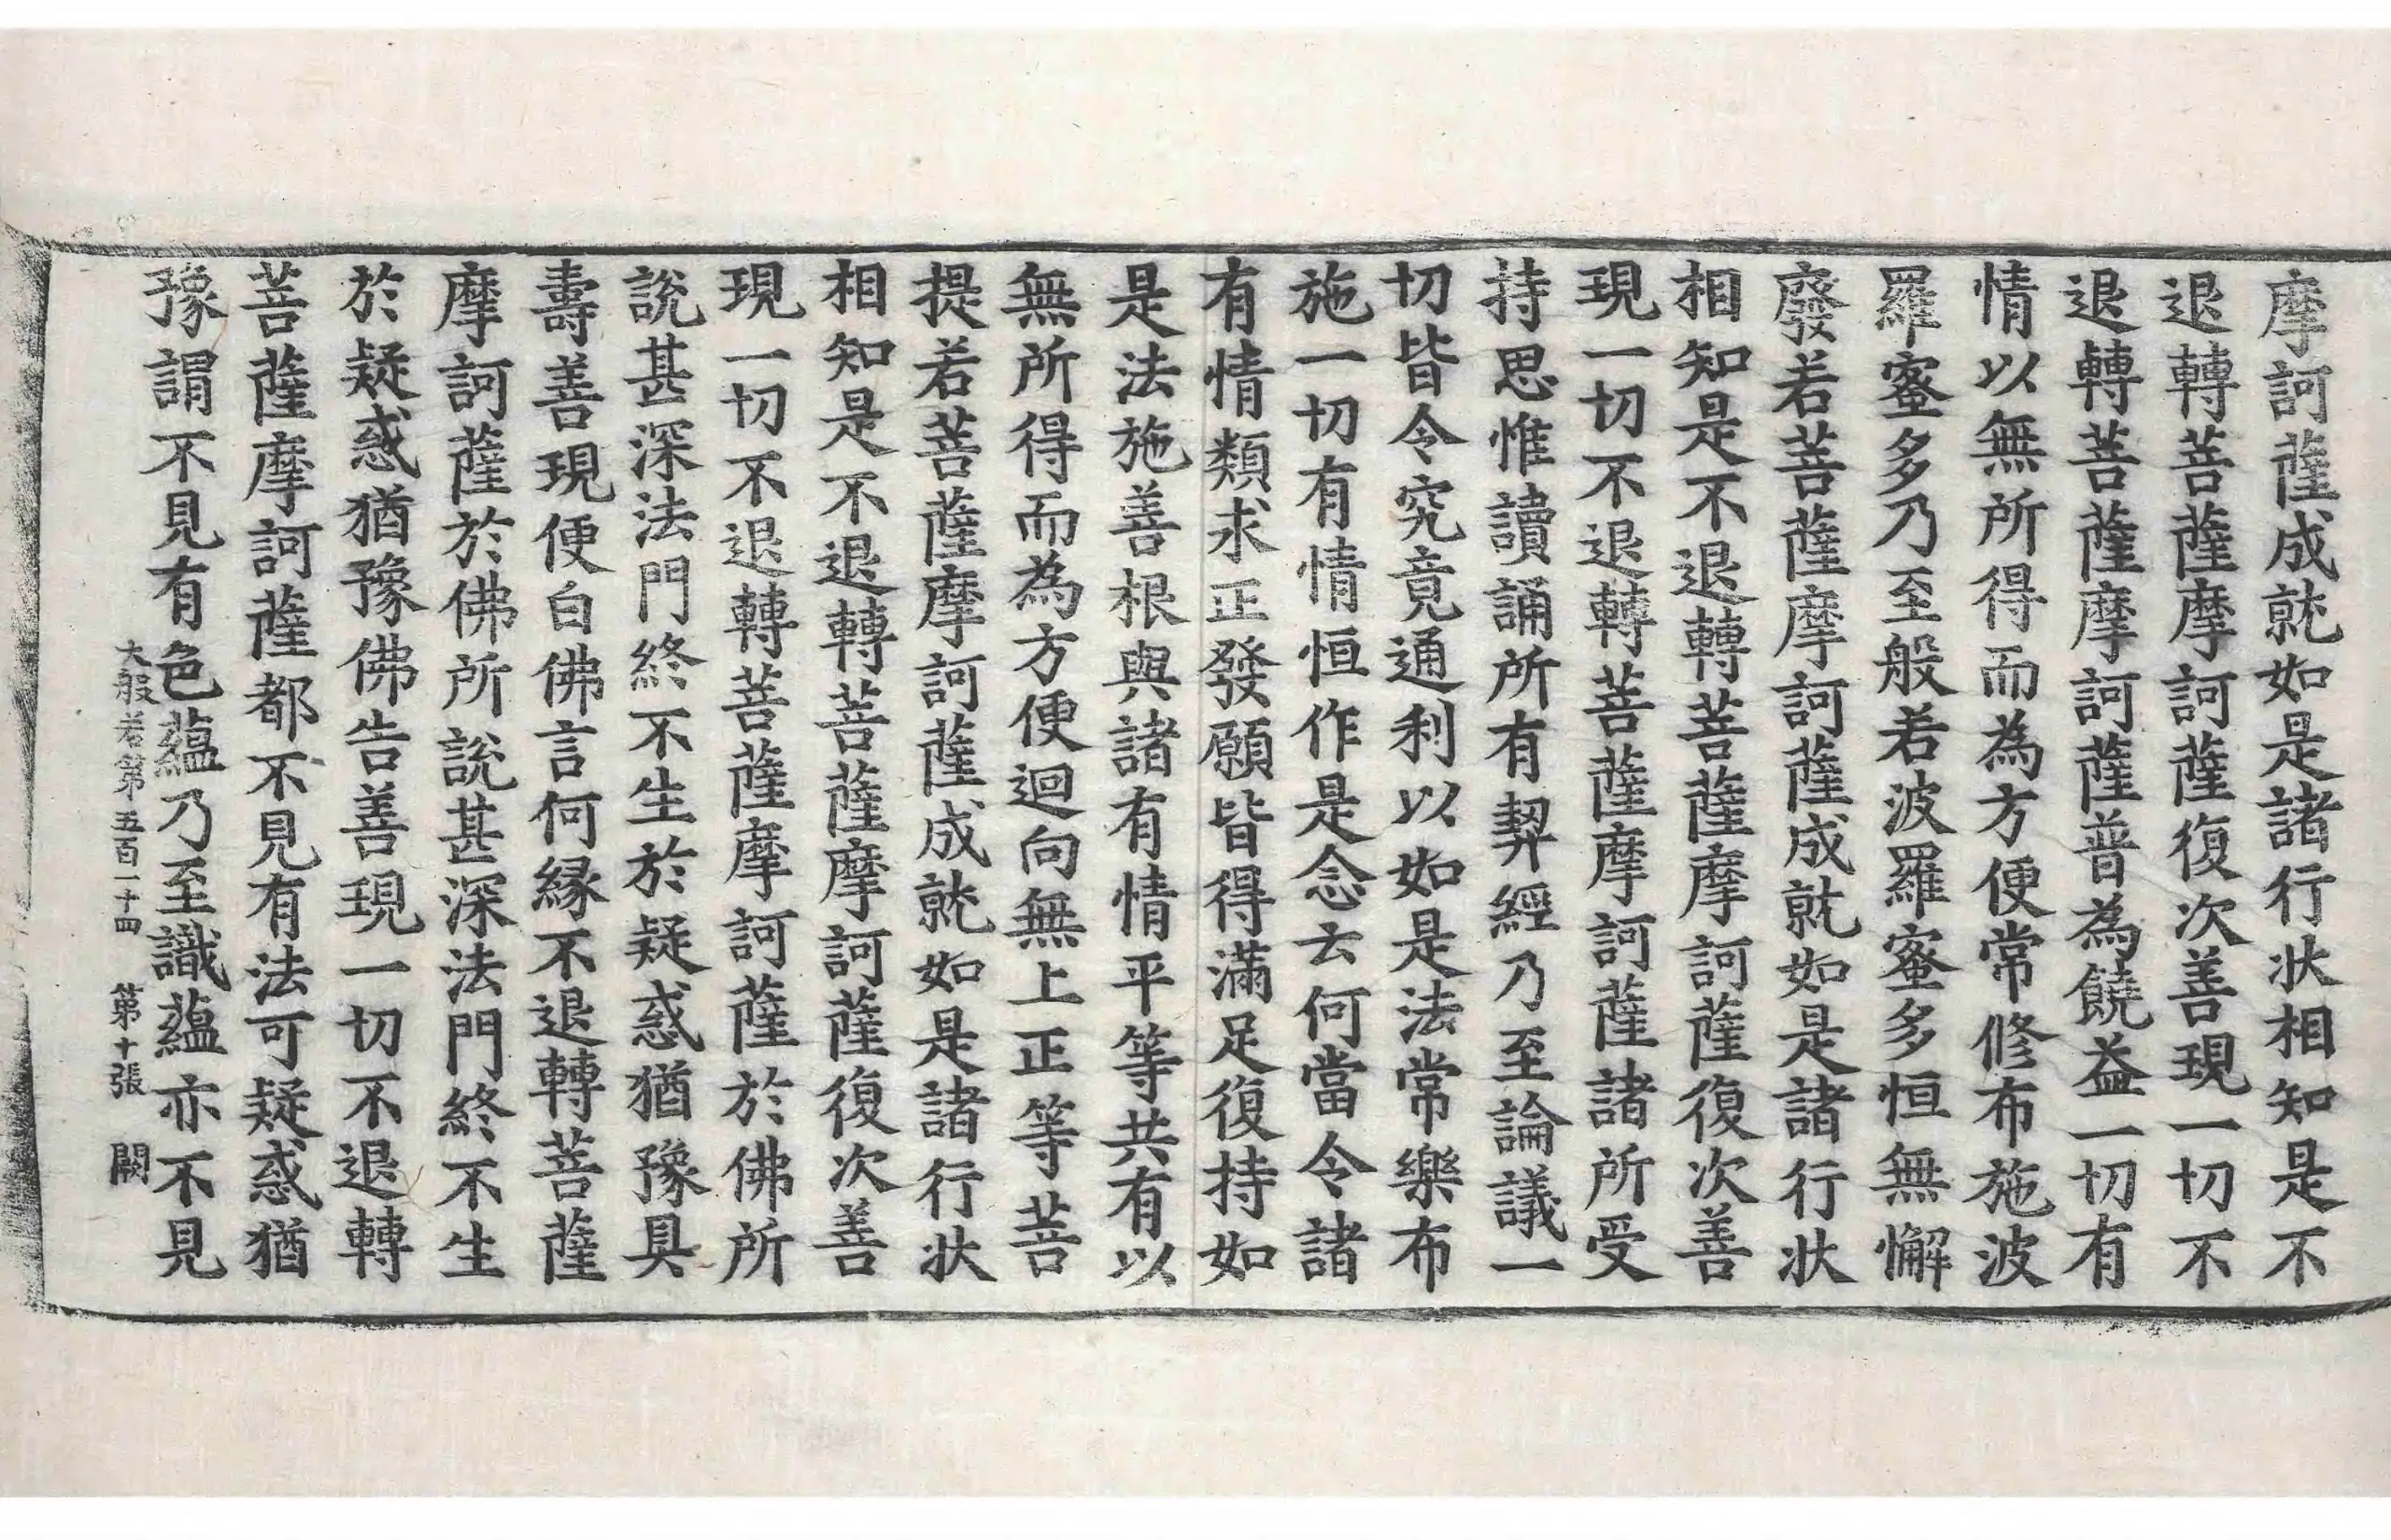 摩訶薩成就如是諸行狀相知是不
退轉菩薩摩訶薩復次善現一切不
退轉菩薩摩訶薩普為饒益一切有
情以無所得而為方便常修布施波
羅蜜多乃至般若波羅蜜多恒無懈
廢若菩薩摩訶薩成就如是諸行狀
相知是不退轉菩薩摩訶薩復次善
現一切不退轉菩薩摩訶薩諸所受
持思惟讀誦所有契經乃至論議一
切皆令究竟通利以如是法常樂布
施一切有情恒作是念云何當令諸
有情類求正發願皆得滿足復持如
是法施善根與諸有情平等共有以
無所得而為方便迴向無上正等菩
提若菩薩摩訶薩成就如是諸行狀
相知是不退轉菩薩摩訶薩復次善
現一切不退轉菩薩摩訶薩於佛所
說甚深法門終不生於疑惑猶豫具
壽善現便白佛言何緣不退轉菩薩
摩訶薩於佛所說甚深法門終不生
於疑惑猶豫佛告善現一切不退轉
菩薩摩訶薩都不見有法可疑惑猶
豫謂不見有色蘊乃至識蘊亦不見
大般若第五百一十四 第十張 闕